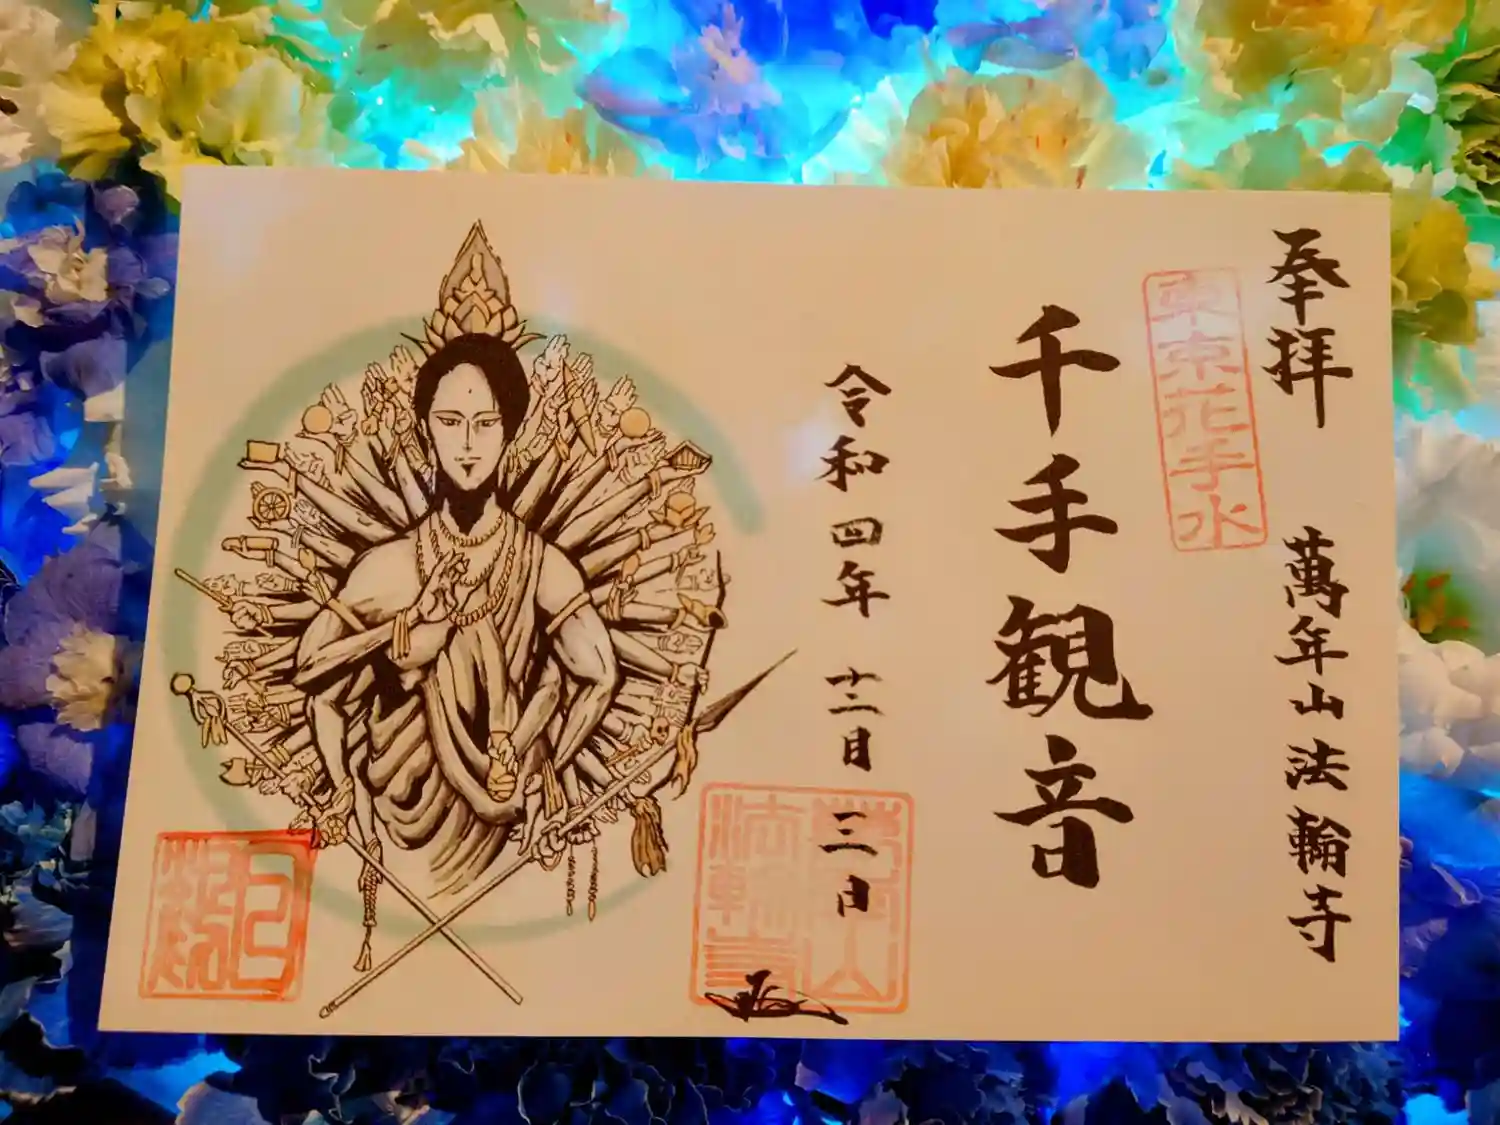 奉拝 萬年山法輪寺
東京花手水
千手観音
令和四年 十二月 三日
萬年山
法輪寺